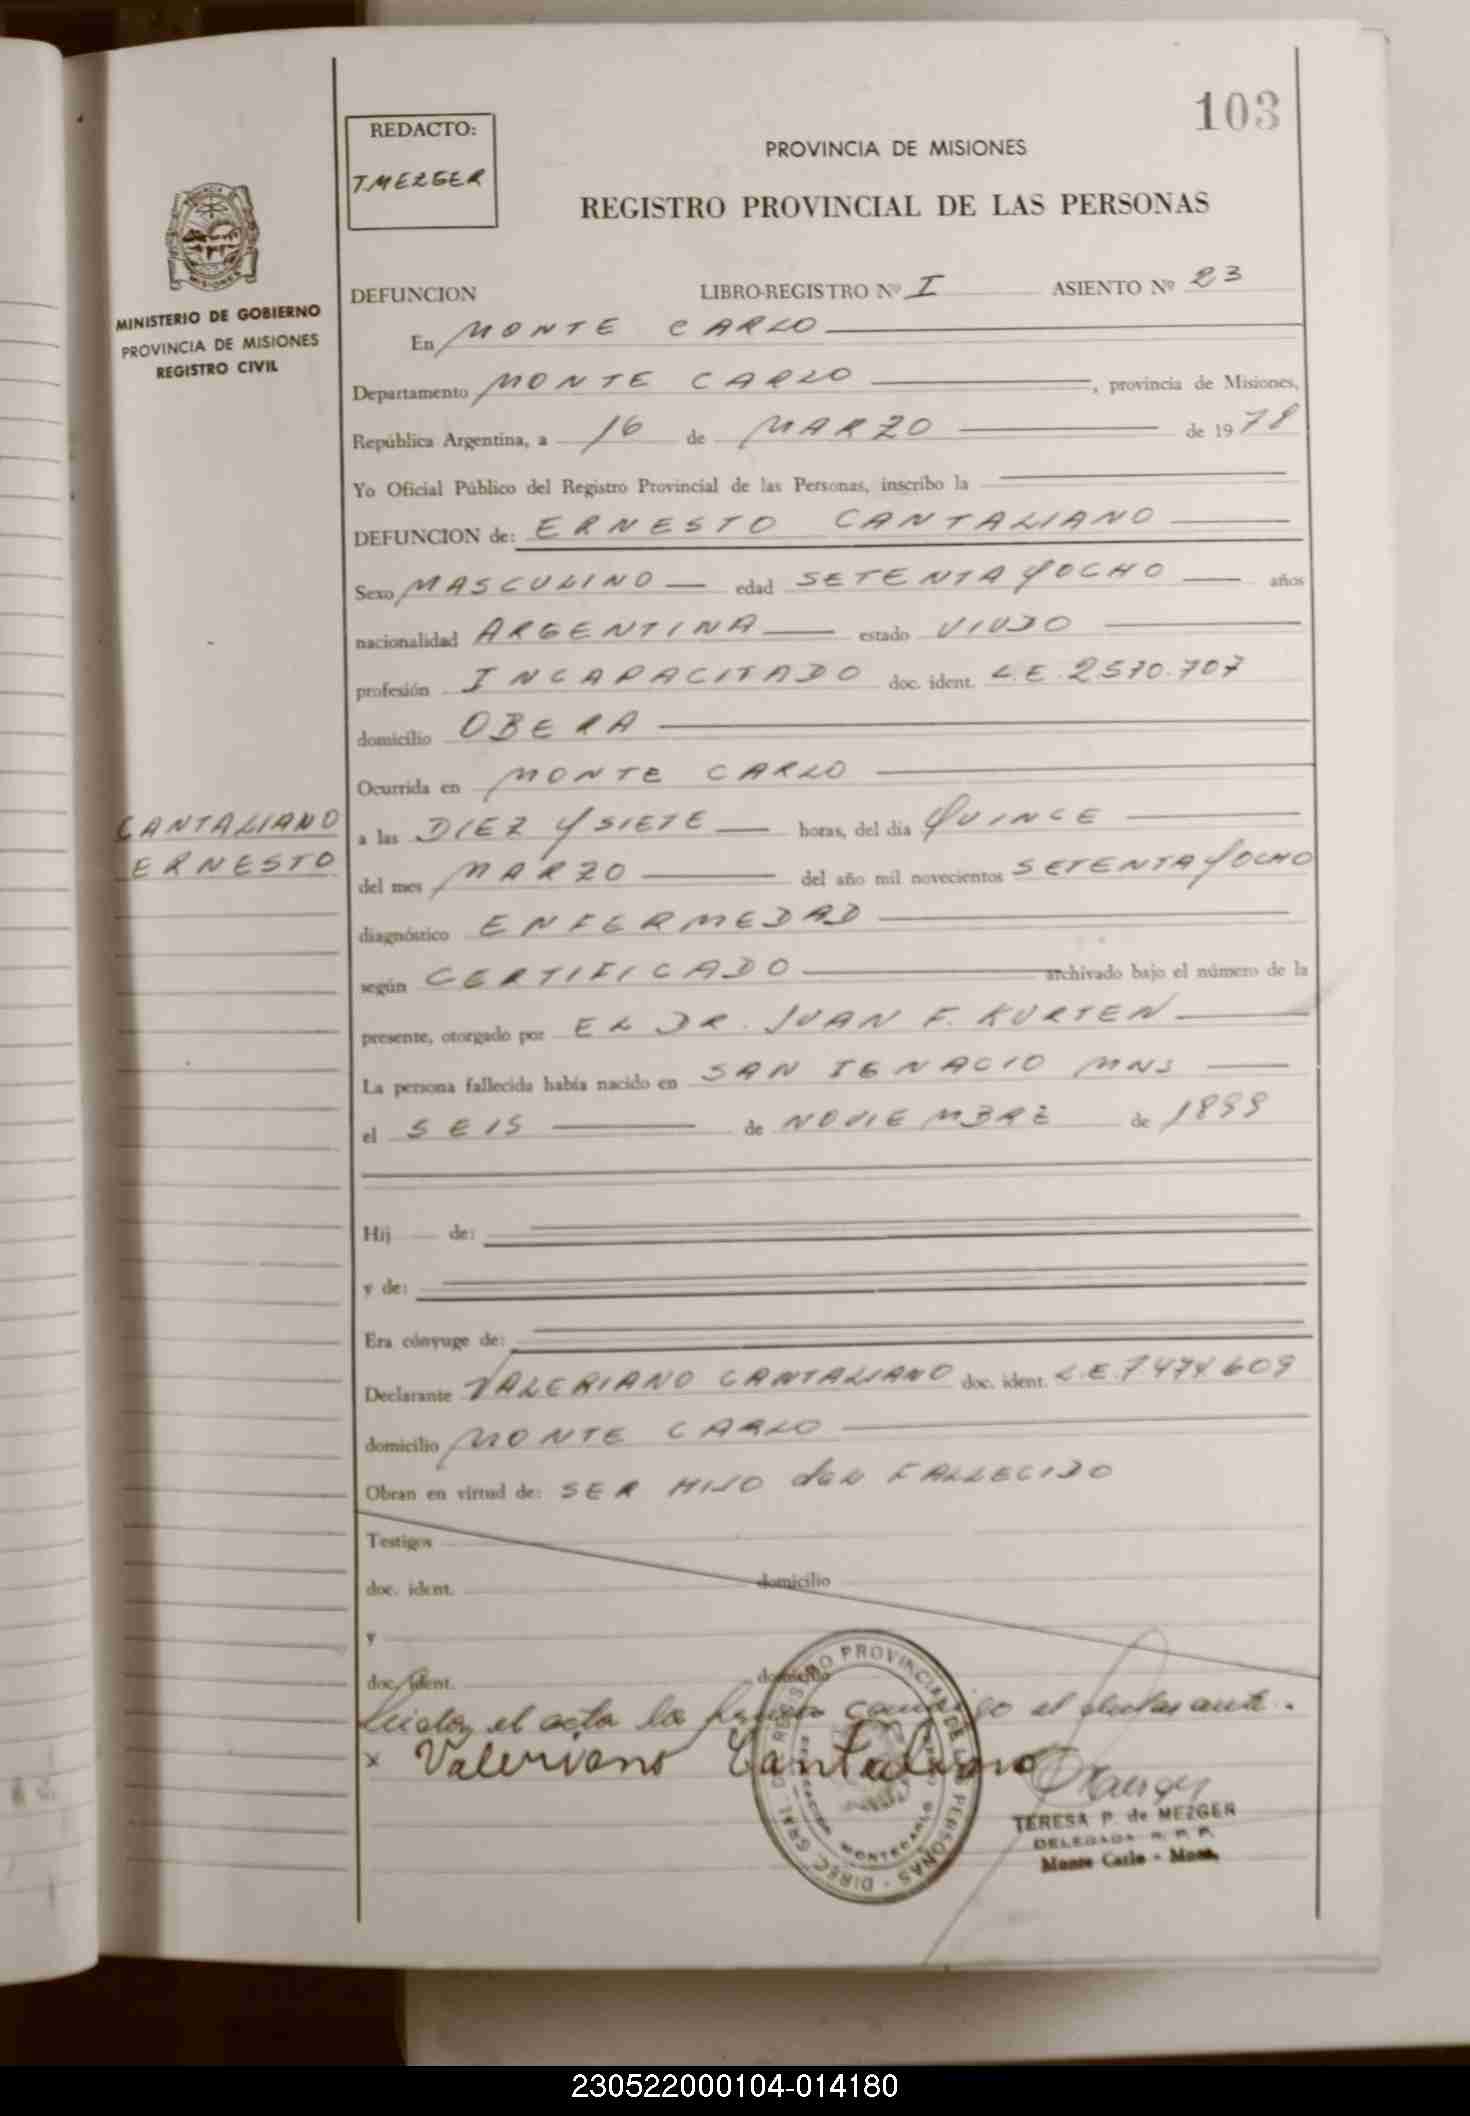 103
REDACTO:
T. MEZGER
PROVINCIA DE MISIONES
REGISTRO PROVINCIAL DE LAS PERSONAS
MINISTERIO DE GOBIERNO
PROVINCIA DE MISIONES
REGISTRO CIVIL
DEFUNCION LIBRO-REGISTRO Nº I ASIENTO Nº 23
En MONTE CARLO
Departamento MONTE CARLO, provincia de Misiones,
República Argentina, a 16 de MARZO de 1978
Yo Oficial Público del Registro Provincial de las Personas, inscribo la
DEFUNCION de: ERNESTO CANTALIANO
Sexo MASCULINO edad SETENTA Y OCHO años
nacionalidad ARGENTINA estado VIUDO
profesión INCAPACITADO doc. ident. L.E. 2.570.707
domicilio OBERA
Ocurrida en MONTE CARLO
CANTALIANO
ERNESTO
a las DIEZ Y SIETE horas, del día QUINCE
del mes MARZO del año mil novecientos SETENTA Y OCHO
diagnóstico ENFERMEDAD
según CERTIFICADO archivado bajo el número de la
presente, otorgado por EL DR. JUAN F. KURTEN
La persona fallecida había nacido en SAN IGNACIO MNS
el SEIS de NOVIEMBRE de 1899
Hij de:
y de:
Era cónyuge de:
Declarante VALERIANO CANTALIANO doc. ident. L.E. 7474609
domicilio MONTE CARLO
Obran en virtud de: SER HIJO del FALLECIDO
Testigos
doc. ident. domicilio
y
doc. ident. domicilio
Leida, el acta la firma conmigo el declarante.
x Valeriano Cantaliano
TERESA P. de MEZGER
DELEGADA R. P. P.
Monte Carlo - Mnes.
REGISTRO PROVINCIAL DE LAS PERSONAS - DIREC. GRAL. DEL
MONTECARLO
230522000104-014180